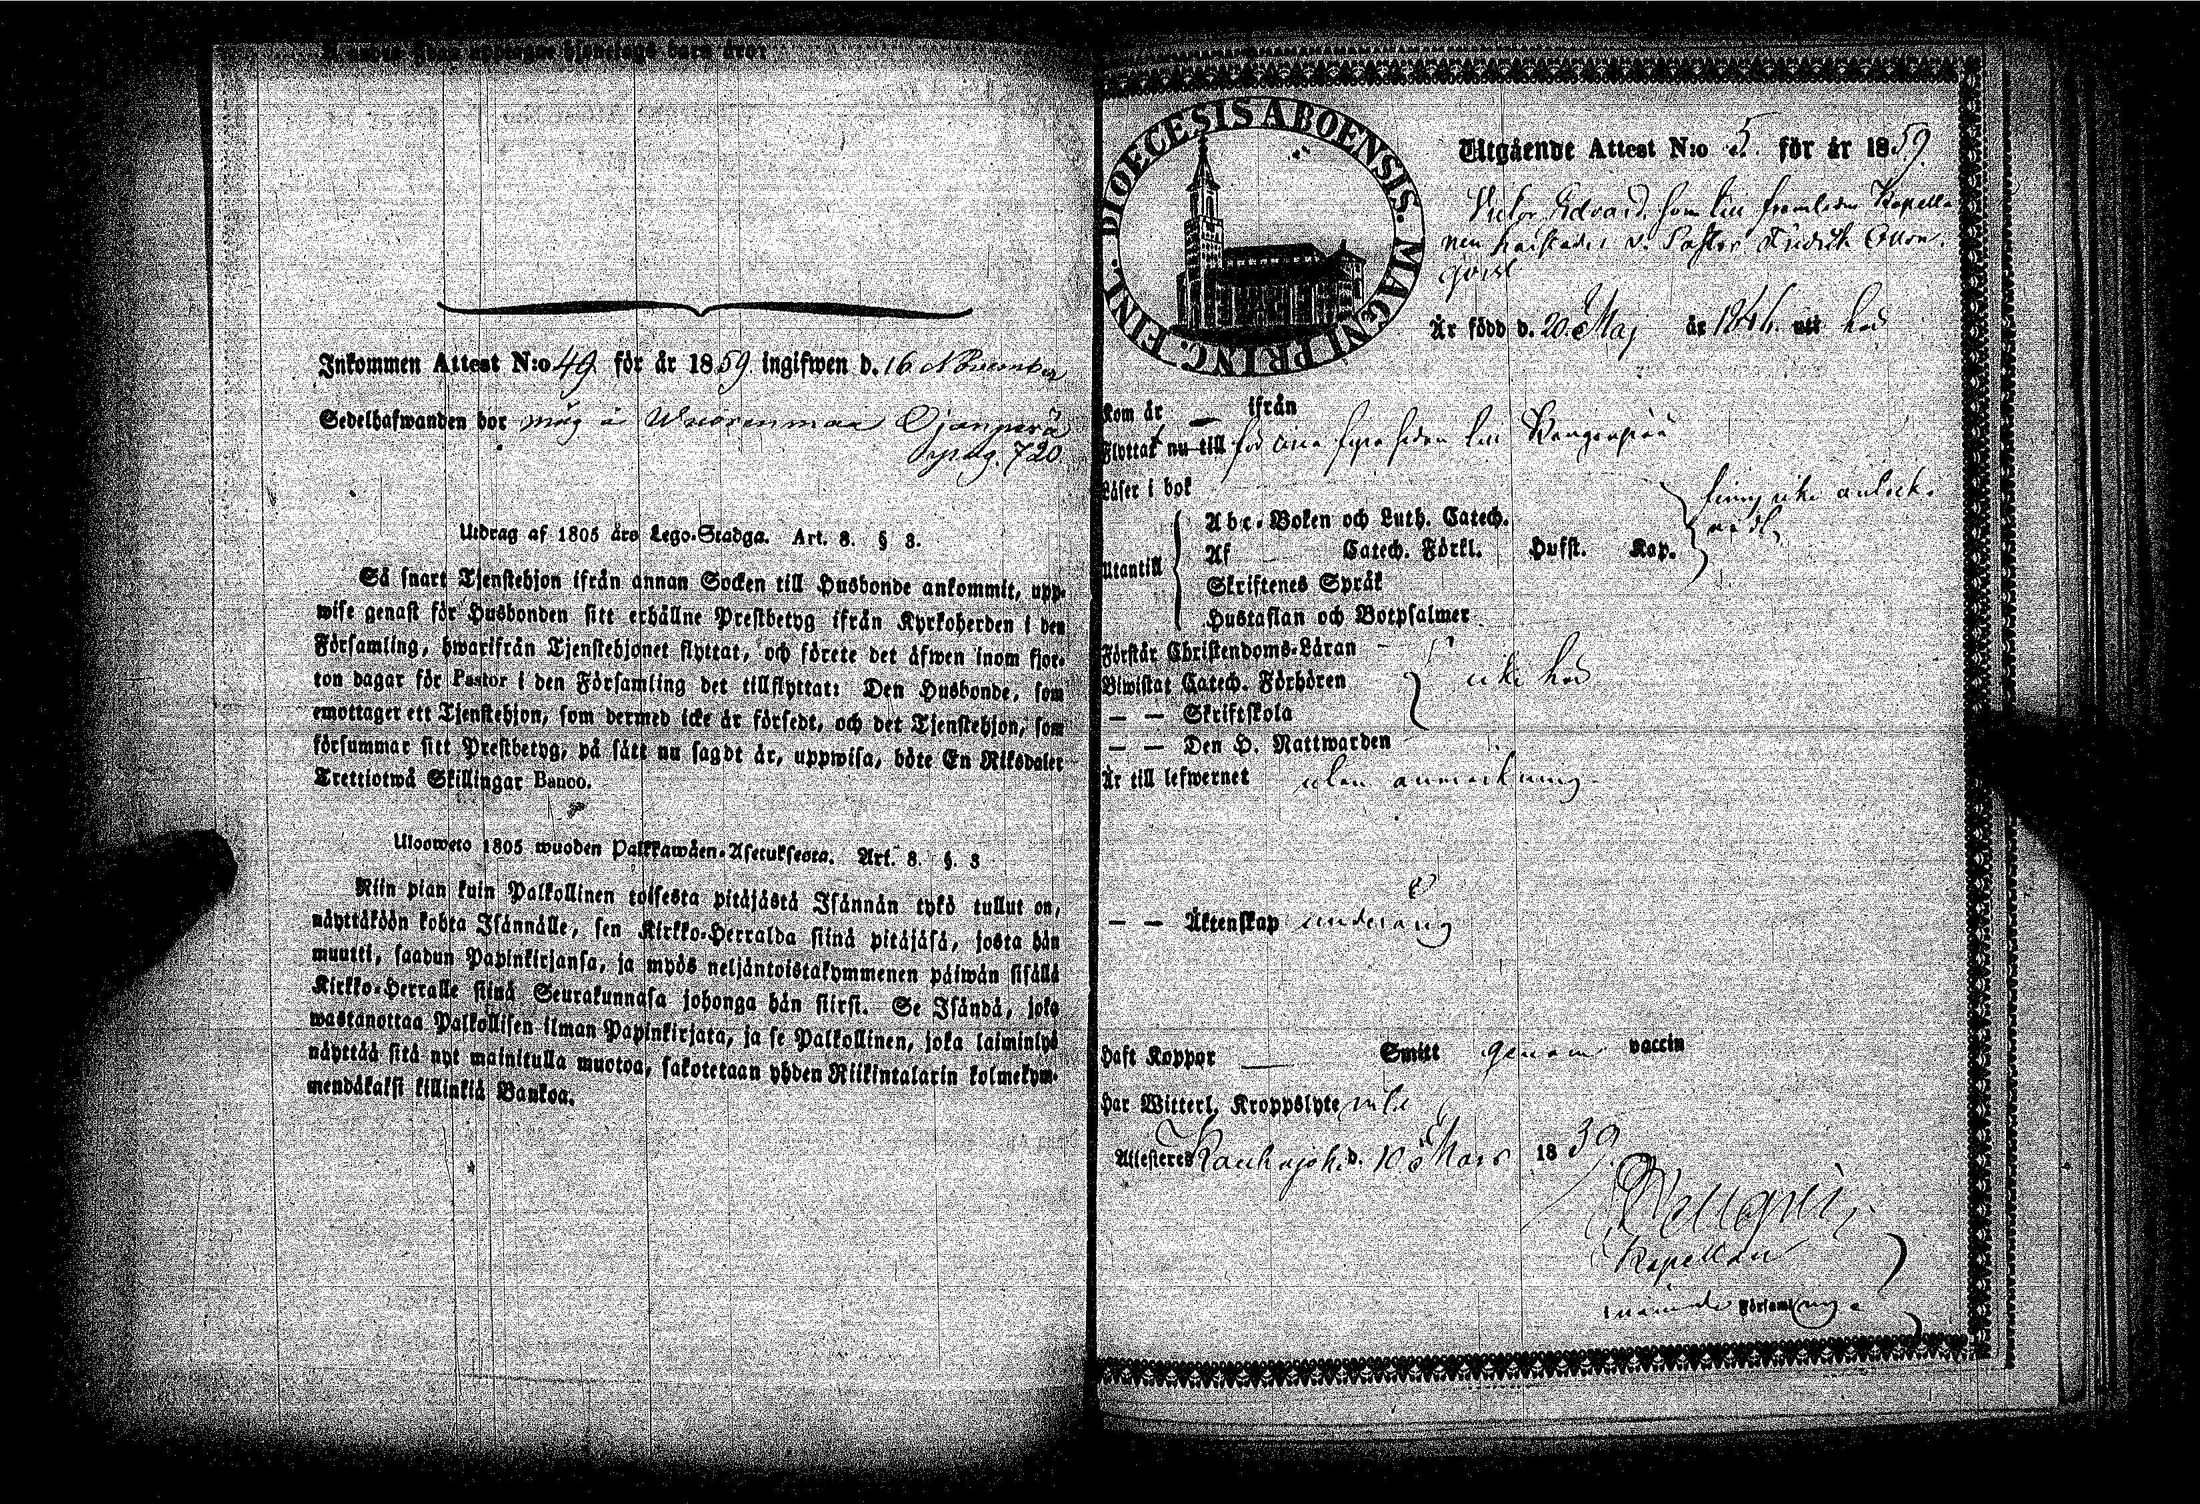 Inkommen Attest N:o 49 för år 1859 ingifwen d. 16 November
Sedelhafwanden bor måg å Wuorenmaa Ojanperä
pag. 720
Utdrag af 1805 års Lego-Stadga. Art. 8. § 3.
Så snart Tjenstehjon ifrån annan Socken till Husbonde ankommit, upp-
wise genast för Husbonden sitt erhållne Prestbetyg ifrån Kyrkoherden i den
Församling, hwarifrån Tjenstehjonet flyttat, och förete det äfwen inom fjor-
ton dagar för Pastor i den Församling det tillflyttat: Den Husbonde, som
emottager ett Tjenstehjon, som dermed icke är försedt, och det Tjenstehjon, som
försummar sitt Prestbetyg, på sätt nu sagdt är, uppwisa, böte En Riksdaler
Trettiotwå Skillingar Banco.
Ulosweto 1805 wuoden Palkkawäen-Asetuksesta. Art. 8. §. 3
Niin pian kuin Palkollinen toisesta pitäjästä Isännän tykö tullut on,
näyttäköön kohta Isännälle, sen Kirkko-Herralda siinä pitäjäsä, josta hän
muutti, saadun Papinkirjansa, ja myös neljäntoistakymmenen päiwän sisällä
Kirkko-Herralle siinä Seurakunnasa johonga hän siirsi. Se Isändä, joka
wastanottaa Palkollisen ilman Papinkirjata, ja se Palkollinen, joka laiminlyö
näyttää sitä nyt mainitulla muotoa, sakotetaan yhden Riikintalarin kolmekym-
mendäkaksi killinkiä Bankoa.
DIOECESIS ABOENSIS. MAGNI PRINC. FINL.
Utgående Attest N:o 5. för år 1859.
Victor Edvard, son till framlidne Kapella
nen v. Pastor Fredrik
Är född d. 20 Maj år 1846. att här
Kom år — ifrån
Flyttat nu till för sina sedan till Kangasperä
Läser i bok
finnes icke anteck-
nadt
Utantill
Abc-Boken och Luth. Catech.
Af Catech. Förkl. Hufst. Kap.
Skriftenes Språk
Hustaflan och Botpsalmer
Förstår Christendoms-Läran
Biwistat Catech. Förhören icke här
— — Skriftskola
— — Den H. Nattwarden
Är till lefwernet utan anmärkning
— — Äktenskap underårig
Haft Koppor — Smitt genom vaccin
Har Witterl. Kroppslyte icke
Attesteres Kauhajoki d. 10 Mars 1859.
Kapellan
Församling